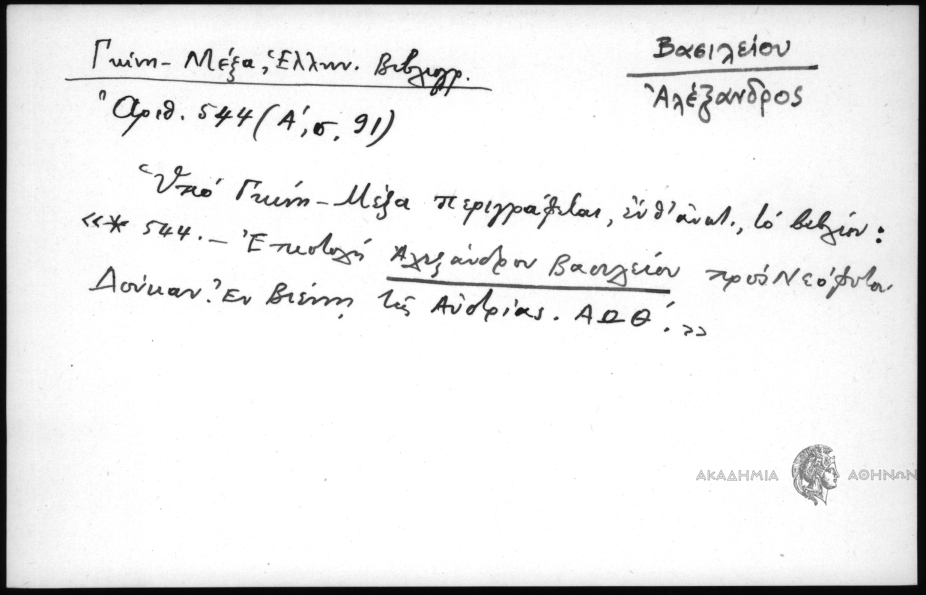 Βασιλείου
Ἀλέξανδρος
Γκίνη - Μέξα, Ἑλλην. Βιβλιογρ.
Ἀριθ. 544 (Α΄, σ. 91)
Ὑπό Γκίνη - Μέξα περιγράφεται, ἐνθ' ἀνωτ., τό βιβλίον:
«* 544. - Ἐπιστολή Ἀλεξάνδρου Βασιλείου πρός Νεόφυτον
Δούκαν. Ἐν Βιέννῃ τῆς Αὐστρίας. ΑΩΘ΄.»
ΑΚΑΔΗΜΙΑ ΑΘΗΝΩΝ